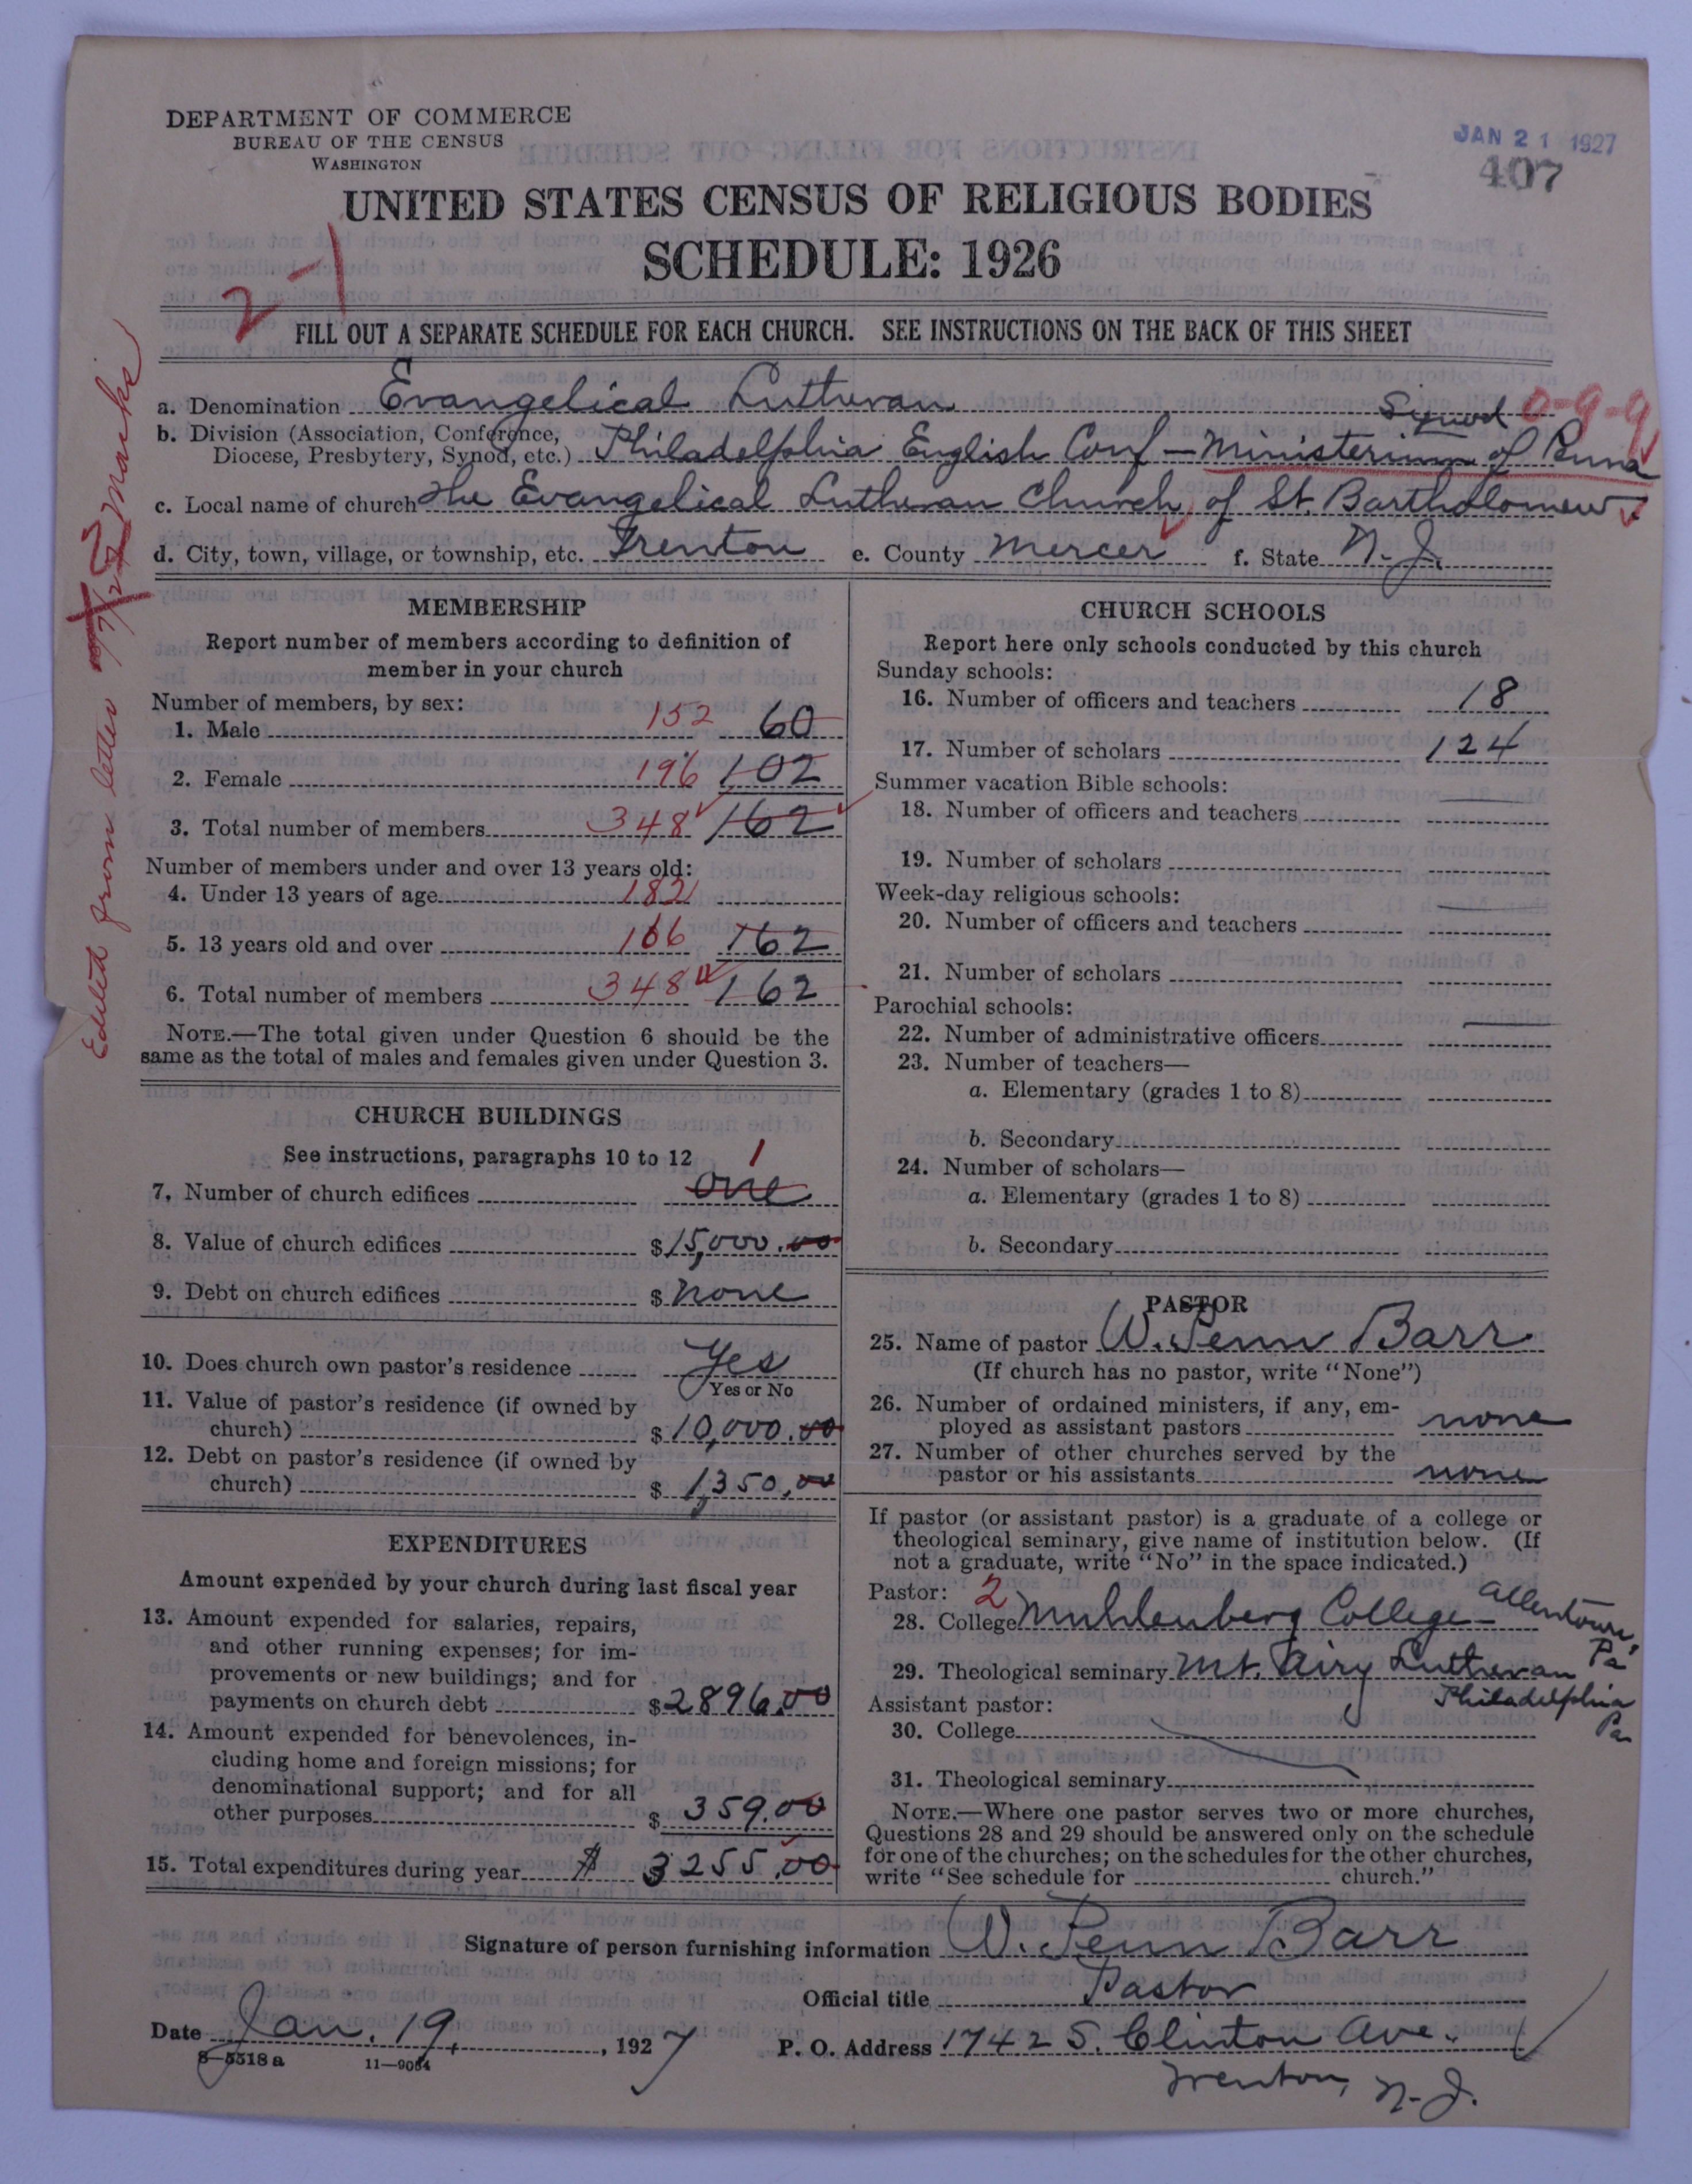 DEPARTMENT OF COMMERCE
BUREAU OF THE CENSUS
WASHINGTON
JAN 21 1927
407
UNITED STATES CENSUS OF RELIGIOUS BODIES
SCHEDULE: 1926
2-1
FILL OUT A SEPARATE SCHEDULE FOR EACH CHURCH. SEE INSTRUCTIONS ON THE BACK OF THIS SHEET
a. Denomination Evangelical Lutheran Synod 0-9-9
b. Division (Association, Conference, Diocese, Presbytery, Synod, etc.) Philadelphia English Conf — Ministerium of Penna
c. Local name of church The Evangelical Lutheran Church of St. Bartholomew
d. City, town, village, or township, etc. Trenton e. County Mercer f. State N. J.
Edited from letter Marks
MEMBERSHIP
Report number of members according to definition of
member in your church
Number of members, by sex:
1. Male 152 60
2. Female 196 102
3. Total number of members 348 162
Number of members under and over 13 years old:
4. Under 13 years of age 182
5. 13 years old and over 166 162
6. Total number of members 348 162
NOTE.—The total given under Question 6 should be the
same as the total of males and females given under Question 3.
CHURCH BUILDINGS
See instructions, paragraphs 10 to 12
7. Number of church edifices 1 one
8. Value of church edifices $15,000.00
9. Debt on church edifices $ none
10. Does church own pastor's residence Yes
Yes or No
11. Value of pastor's residence (if owned by
church) $10,000.00
12. Debt on pastor's residence (if owned by
church) $1,350.00
EXPENDITURES
Amount expended by your church during last fiscal year
13. Amount expended for salaries, repairs,
and other running expenses; for im-
provements or new buildings; and for
payments on church debt $2896.00
14. Amount expended for benevolences, in-
cluding home and foreign missions; for
denominational support; and for all
other purposes $359.00
15. Total expenditures during year $ 3255.00
CHURCH SCHOOLS
Report here only schools conducted by this church
Sunday schools:
16. Number of officers and teachers 18
17. Number of scholars 124
Summer vacation Bible schools:
18. Number of officers and teachers
19. Number of scholars
Week-day religious schools:
20. Number of officers and teachers
21. Number of scholars
Parochial schools:
22. Number of administrative officers
23. Number of teachers—
a. Elementary (grades 1 to 8)
b. Secondary
24. Number of scholars—
a. Elementary (grades 1 to 8)
b. Secondary
PASTOR
25. Name of pastor W. Penn Barr
(If church has no pastor, write "None")
26. Number of ordained ministers, if any, em-
ployed as assistant pastors none
27. Number of other churches served by the
pastor or his assistants none
If pastor (or assistant pastor) is a graduate of a college or
theological seminary, give name of institution below. (If
not a graduate, write "No" in the space indicated.)
Pastor: 2
28. College Muhlenberg College - Allentown, Pa
29. Theological seminary Mt. Airy Lutheran Philadelphia Pa
Assistant pastor:
30. College
31. Theological seminary
NOTE.—Where one pastor serves two or more churches,
Questions 28 and 29 should be answered only on the schedule
for one of the churches; on the schedules for the other churches,
write "See schedule for church."
Signature of person furnishing information W. Penn Barr
Official title Pastor
Date Jan. 19, 1927
P. O. Address 1742 S. Clinton Ave.
Trenton, N. J.
8-5318a 11-9064